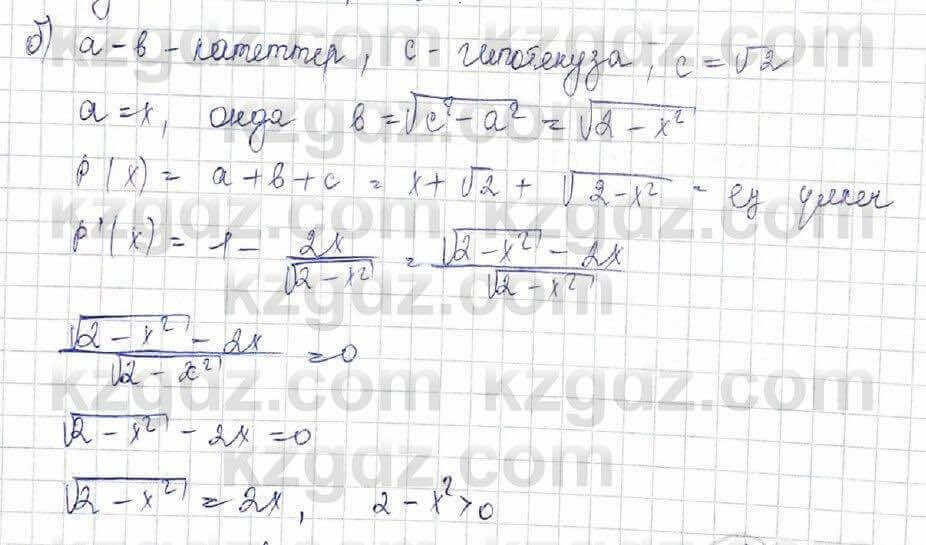 б) a - b - катеттер, c - гипотенуза, c = √2
a = x, онда b = √(c² - a²) = √(2 - x²)
P(x) = a + b + c = x + √2 + √(2 - x²) - ең үлкен
P'(x) = 1 - 2x/√(2 - x²) = (√(2 - x²) - 2x)/√(2 - x²)
(√(2 - x²) - 2x)/√(2 - x²) = 0
√(2 - x²) - 2x = 0
√(2 - x²) = 2x, 2 - x² > 0
kzgdz.com kzgdz.com
kzgdz.com
kzgdz.com kzgdz.com
kzgdz.com
kzgdz.com kzgdz.com
kzgdz.com